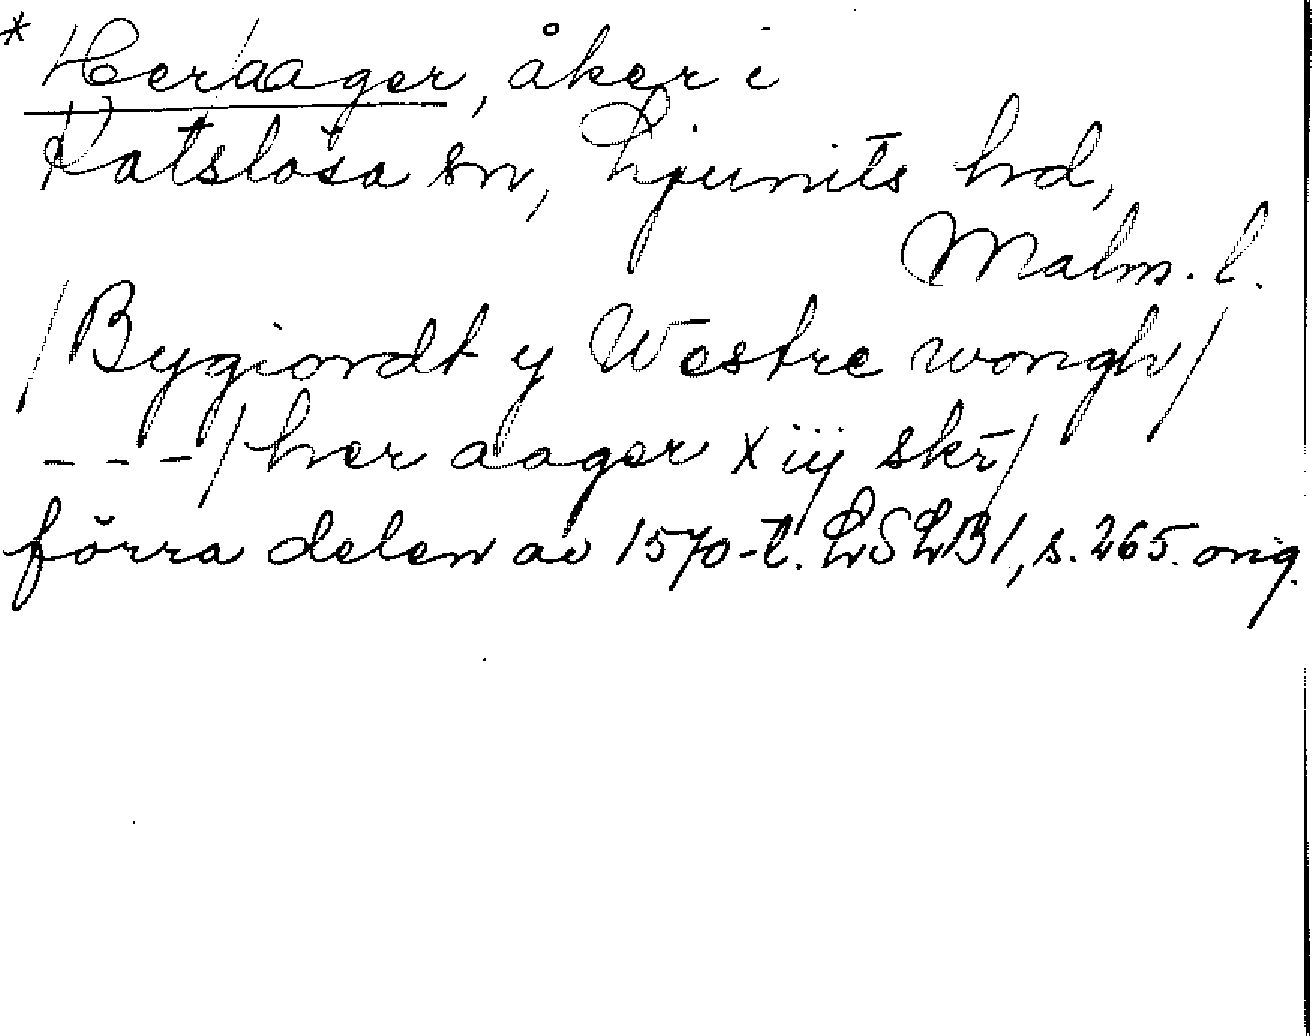 * Her/aager, åker i
Katslösa sn, Ljunits hd,
Malm. l.
/Bygiordt y Westre wongh/
- - -/her aager xiij skr̄/
förra delen av 1570-t. LSLB1, s. 265. orig.